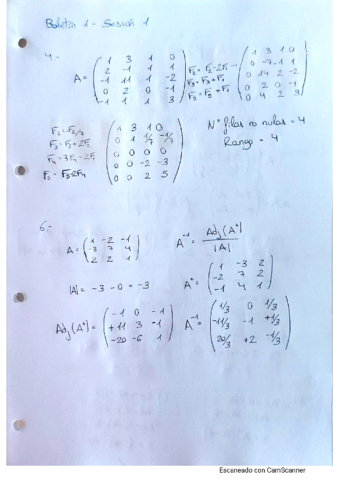 Boletín 1 - Sesión 1
4.-
A = ( 1 3 1 0
2 -1 1 1
-1 11 1 -2
0 2 0 -1
-1 1 1 3 )
F2 = F2 - 2F1
F3 = F3 + F1
F5 = F5 + F1
( 1 3 1 0
0 -7 -1 1
0 14 2 -2
0 2 0 -1
0 4 2 3 )
F3 = F3 + 2F2
( 1 3 1 0
0 1 1/7 -1/7
0 0 0 0
0 0 -2 -3
0 0 2 5 )
Nº filas no nulas = 4
Rango = 4
6.-
A = ( 1 -2 -1
-3 7 4
2 2 1 )
A^-1 = Adj (A^t) / |A|
|A| = -3 - 0 = -3
A^t = ( 1 -3 2
-2 7 2
-1 4 1 )
Adj (A^t) = ( -1 0 -1
+11 3 -1
-20 -6 1 )
A^-1 = ( 1/3 0 1/3
-11/3 -1 +1/3
20/3 +2 -1/3 )
Escaneado con CamScanner